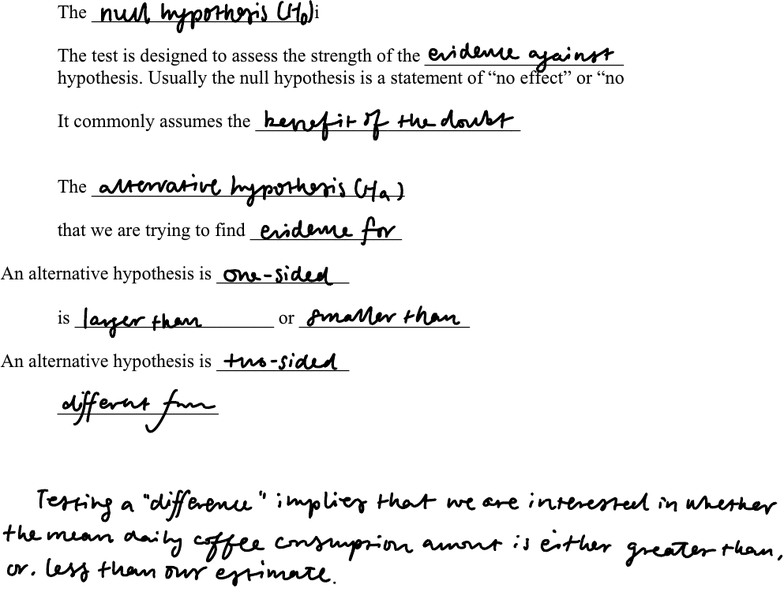 The null hypothesis (H0)i
The test is designed to assess the strength of the evidence against
hypothesis. Usually the null hypothesis is a statement of “no effect” or “no
It commonly assumes the benefit of the doubt
The alternative hypothesis (Ha)
that we are trying to find evidence for
An alternative hypothesis is one-sided
is larger than or smaller than
An alternative hypothesis is two-sided
different from
Testing a "difference" implies that we are interested in whether
the mean daily coffee consumption amount is either greater than,
or. less than our estimate.